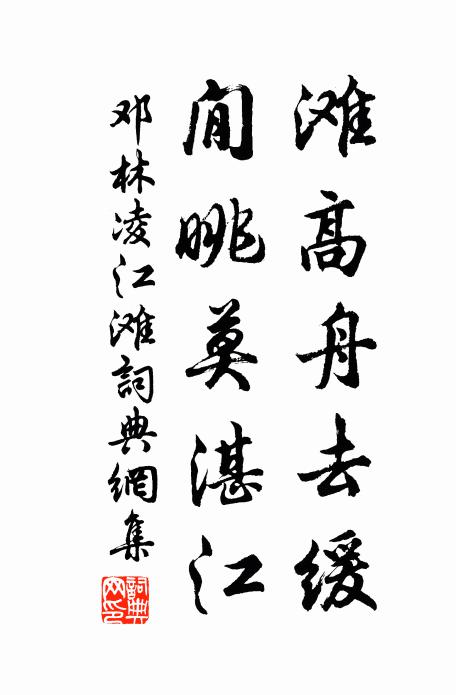 滩高舟去缓
闲眺莫湛江
邓林凌江滩詞典網集
詞典網印